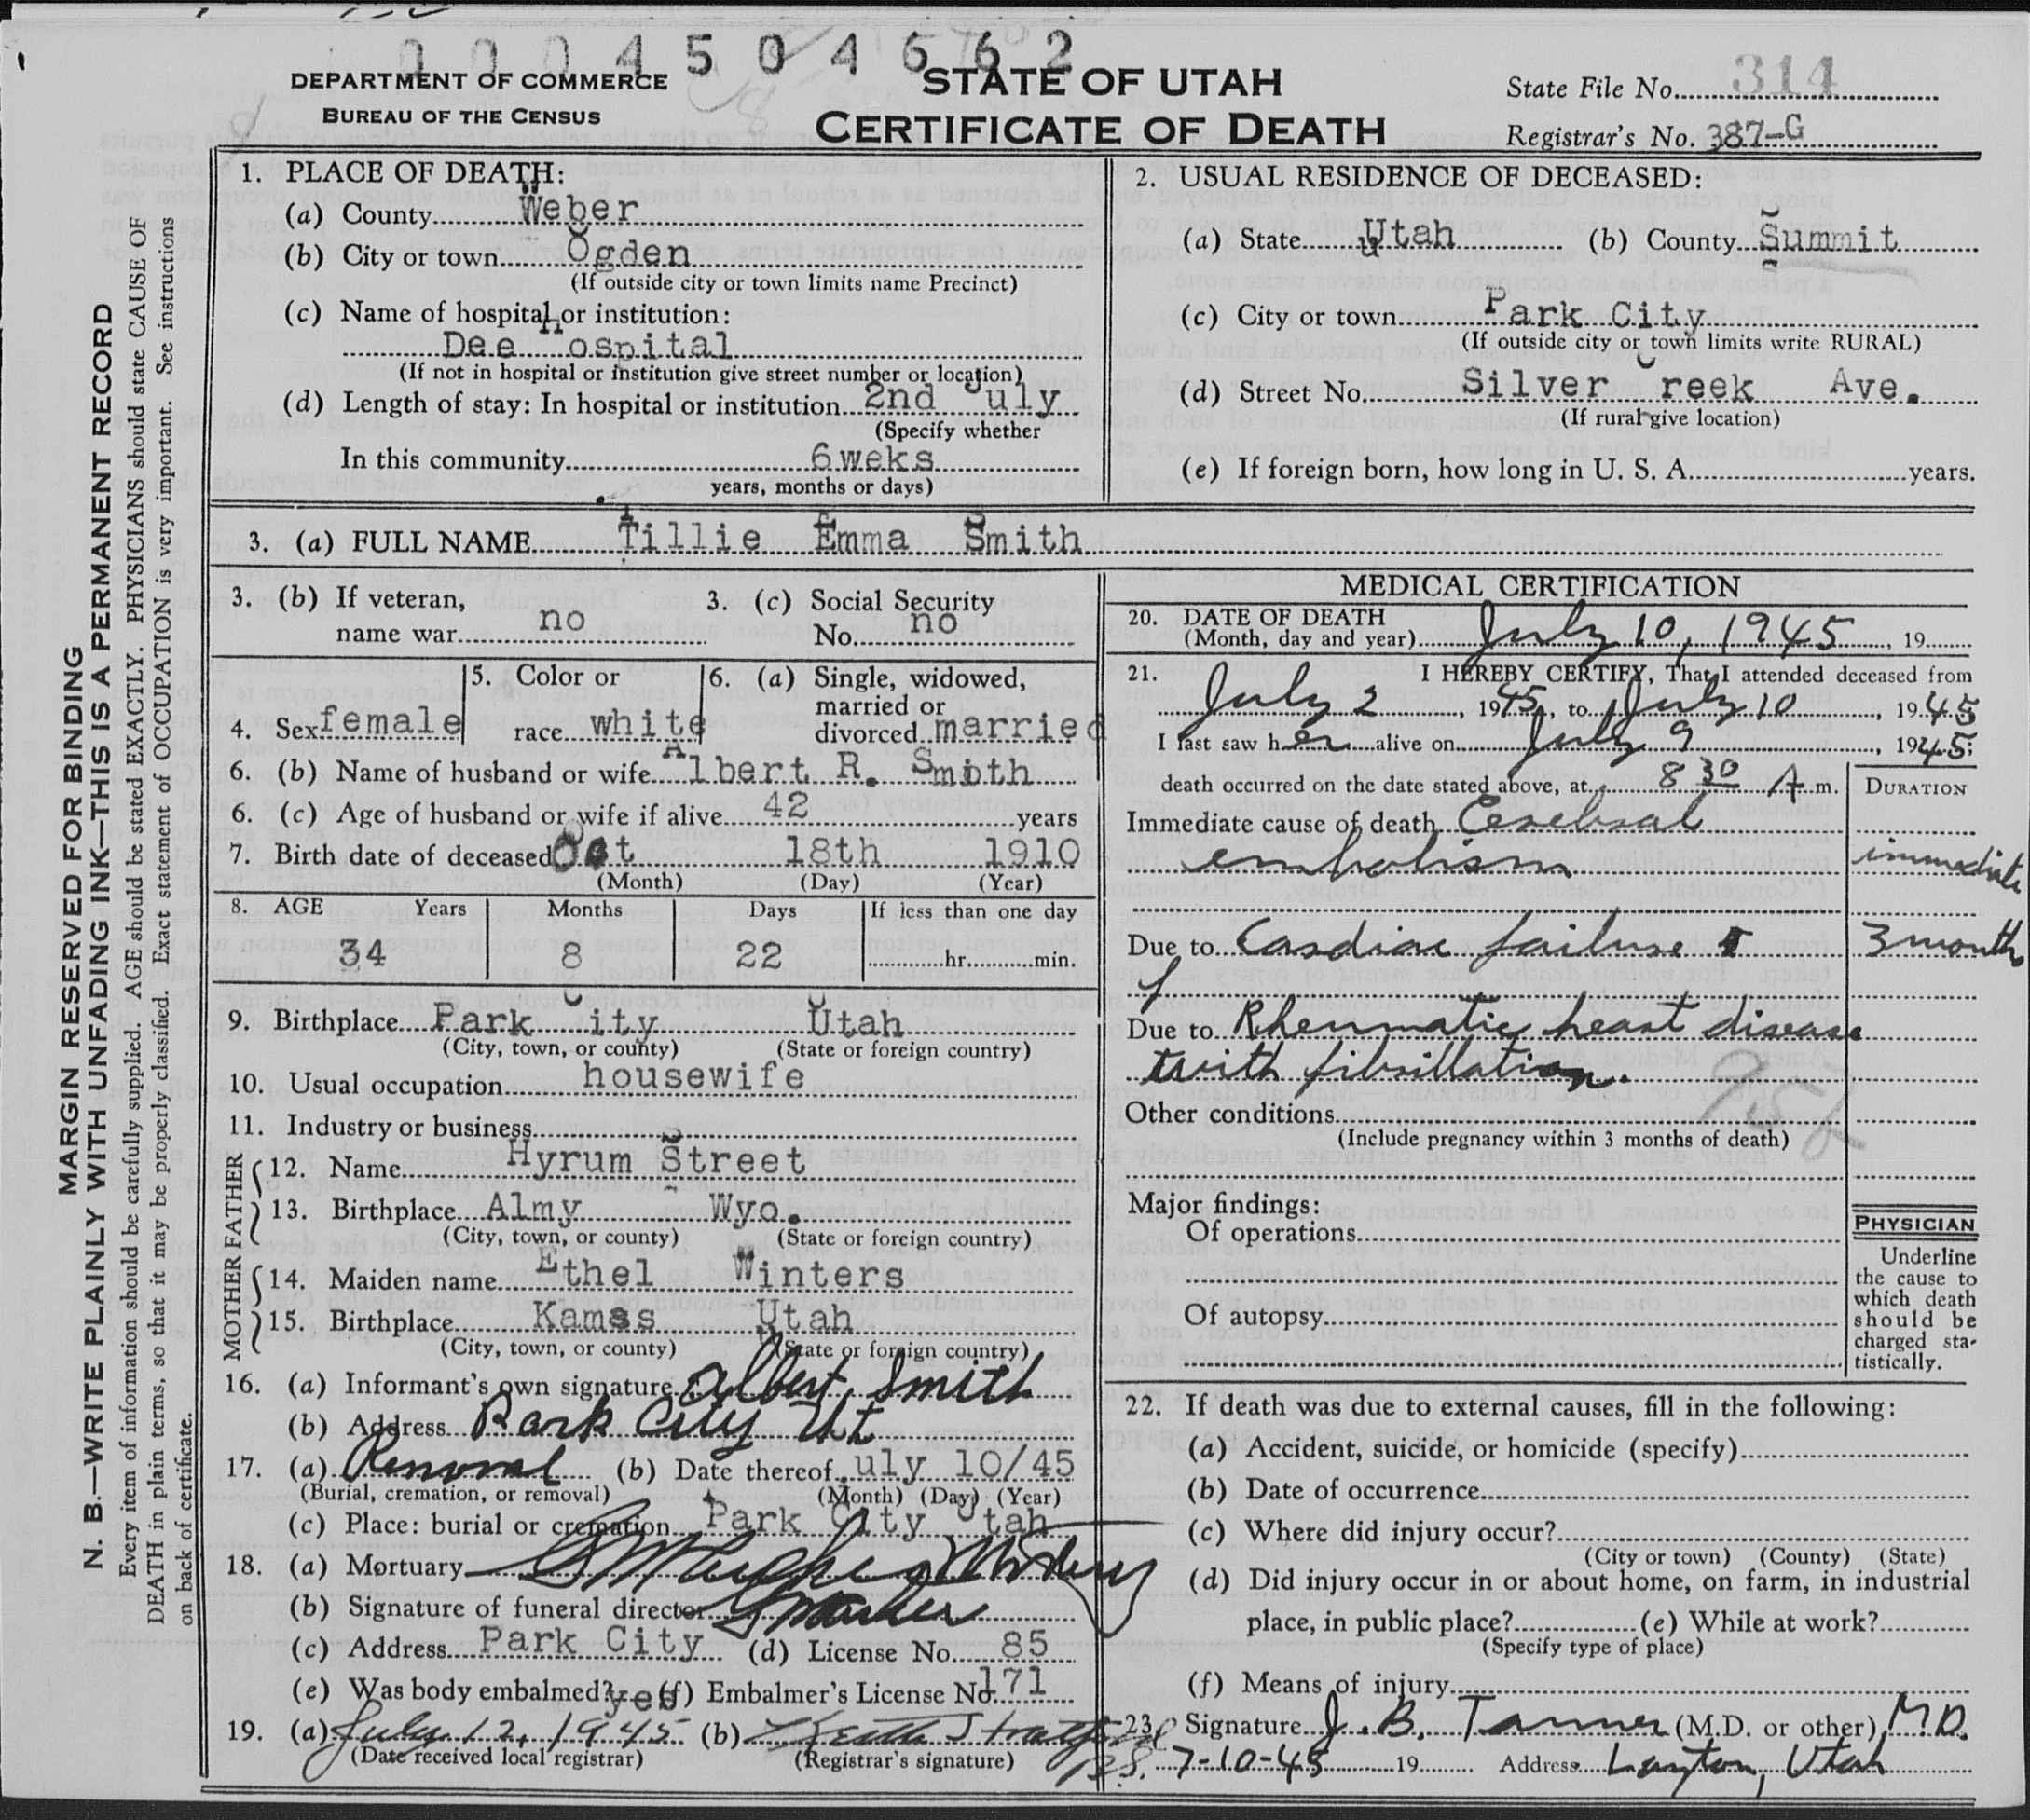 0004504662
DEPARTMENT OF COMMERCE
BUREAU OF THE CENSUS
STATE OF UTAH
CERTIFICATE OF DEATH
State File No. 314
Registrar's No. 387-G
MARGIN RESERVED FOR BINDING
N. B.—WRITE PLAINLY WITH UNFADING INK—THIS IS A PERMANENT RECORD
Every item of information should be carefully supplied. AGE should be stated EXACTLY. PHYSICIANS should state CAUSE OF
DEATH in plain terms, so that it may be properly classified. Exact statement of OCCUPATION is very important. See instructions
on back of certificate.
1. PLACE OF DEATH:
(a) County Weber
(b) City or town Ogden
(If outside city or town limits name Precinct)
(c) Name of hospital or institution:
Dee Hospital
(If not in hospital or institution give street number or location)
(d) Length of stay: In hospital or institution 2nd July
(Specify whether
In this community 6weks
years, months or days)
2. USUAL RESIDENCE OF DECEASED:
(a) State Utah (b) County Summit
(c) City or town Park City
(If outside city or town limits write RURAL)
(d) Street No. Silver Creek Ave.
(If rural give location)
(e) If foreign born, how long in U. S. A. years.
3. (a) FULL NAME Tillie Emma Smith
3. (b) If veteran,
name war no
3. (c) Social Security
No. no
4. Sex female
5. Color or
race white
6. (a) Single, widowed,
married or
divorced married
6. (b) Name of husband or wife Albert R. Smith
6. (c) Age of husband or wife if alive 42 years
7. Birth date of deceased Oct 18th 1910
(Month) (Day) (Year)
8. AGE Years Months Days If less than one day
34 8 22 hr. min.
9. Birthplace Park City Utah
(City, town, or county) (State or foreign country)
10. Usual occupation housewife
11. Industry or business
FATHER
12. Name Hyrum Street
13. Birthplace Almy Wyo.
(City, town, or county) (State or foreign country)
MOTHER
14. Maiden name Ethel Winters
15. Birthplace Kamas Utah
(City, town, or county) (State or foreign country)
16. (a) Informant's own signature Albert Smith
(b) Address Park City Ut
17. (a) Removal (b) Date thereof July 10/45
(Burial, cremation, or removal) (Month) (Day) (Year)
(c) Place: burial or cremation Park City Utah
18. (a) Mortuary
(b) Signature of funeral director
(c) Address Park City (d) License No. 85
(e) Was body embalmed? yes (f) Embalmer's License No. 171
19. (a) July 12, 1945 (b) Keith
(Date received local registrar) (Registrar's signature)
MEDICAL CERTIFICATION
20. DATE OF DEATH
(Month, day and year) July 10, 1945, 19
21. I HEREBY CERTIFY, That I attended deceased from
July 2, 1945, to July 10, 1945
I last saw her alive on July 9, 1945;
death occurred on the date stated above, at 8 30 A.m.
DURATION
Immediate cause of death Cerebral
embolism immediate
Due to Cardiac failure 3 month
Due to Rheumatic heart disease
with fibrillation.
Other conditions
(Include pregnancy within 3 months of death)
Major findings:
Of operations
Of autopsy
PHYSICIAN
Underline
the cause to
which death
should be
charged sta-
tistically.
22. If death was due to external causes, fill in the following:
(a) Accident, suicide, or homicide (specify)
(b) Date of occurrence
(c) Where did injury occur?
(City or town) (County) (State)
(d) Did injury occur in or about home, on farm, in industrial
place, in public place? (e) While at work?
(Specify type of place)
(f) Means of injury
23. Signature J. B. Tanner (M.D. or other) M.D.
7-10-45 19 Address Layton, Utah